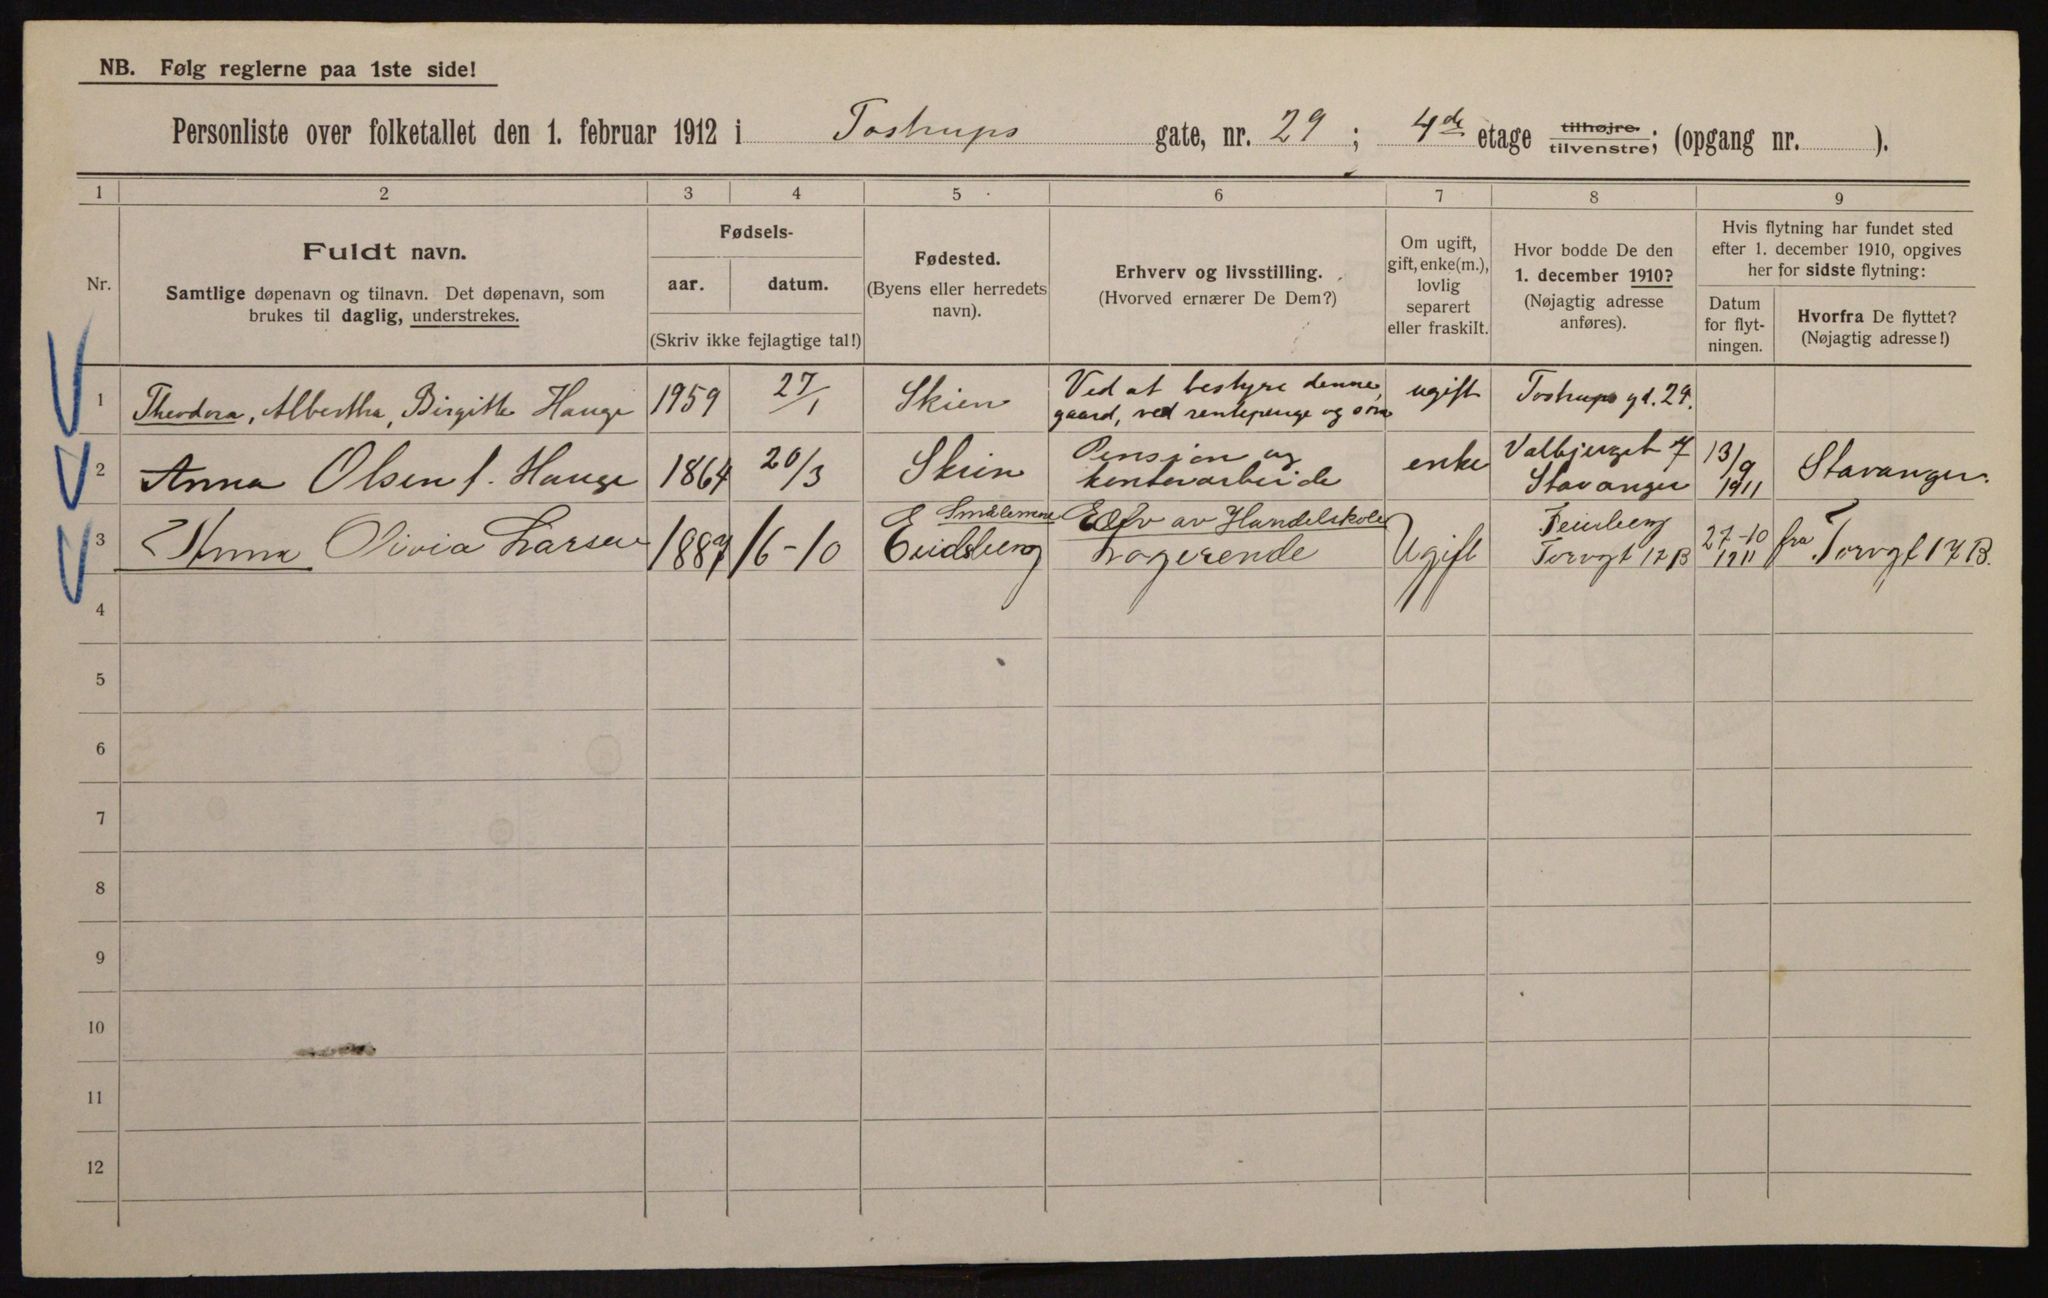 NB. Følg reglerne paa 1ste side!
Personliste over folketallet den 1. februar 1912 i Tostrups gate, nr. 29; 4de etage tilhøjre. tilvenstre; (opgang nr. ).
1 2 3 4 5 6 7 8 9
Nr.
Fuldt navn.
Samtlige døpenavn og tilnavn. Det døpenavn, som
brukes til daglig, understrekes.
Fødsels-
aar. datum.
(Skriv ikke fejlagtige tal!)
Fødested.
(Byens eller herredets
navn).
Erhverv og livsstilling.
(Hvorved ernærer De Dem?)
Om ugift,
gift, enke(m.),
lovlig
separert
eller fraskilt.
Hvor bodde De den
1. december 1910?
(Nøjagtig adresse
anføres).
Hvis flytning har fundet sted
efter 1. december 1910, opgives
her for sidste flytning:
Datum
for flyt-
ningen.
Hvorfra De flyttet?
(Nøjagtig adresse!)
1 Theodora, Albertha, Birgitte Hauge 1959 27/1 Skien Ved at bestyre denne ugift Tostrups gd. 29.
gaard, ved rentepenge og
2 Anna Olsen f. Hauge 1864 20/3 Skien Pension og enke Valbjerget 7 13/9 Stavanger.
kontorarbeide Stavanger 1911
3 Anna Olivia Larsen 1887 16-10 Smålenene Elev av Handelskole Ugift 27-10 fra Torvgt 17B.
Eidsberg Logerende Torvgt 17B 1911
4
5
6
7
8
9
10
11
12